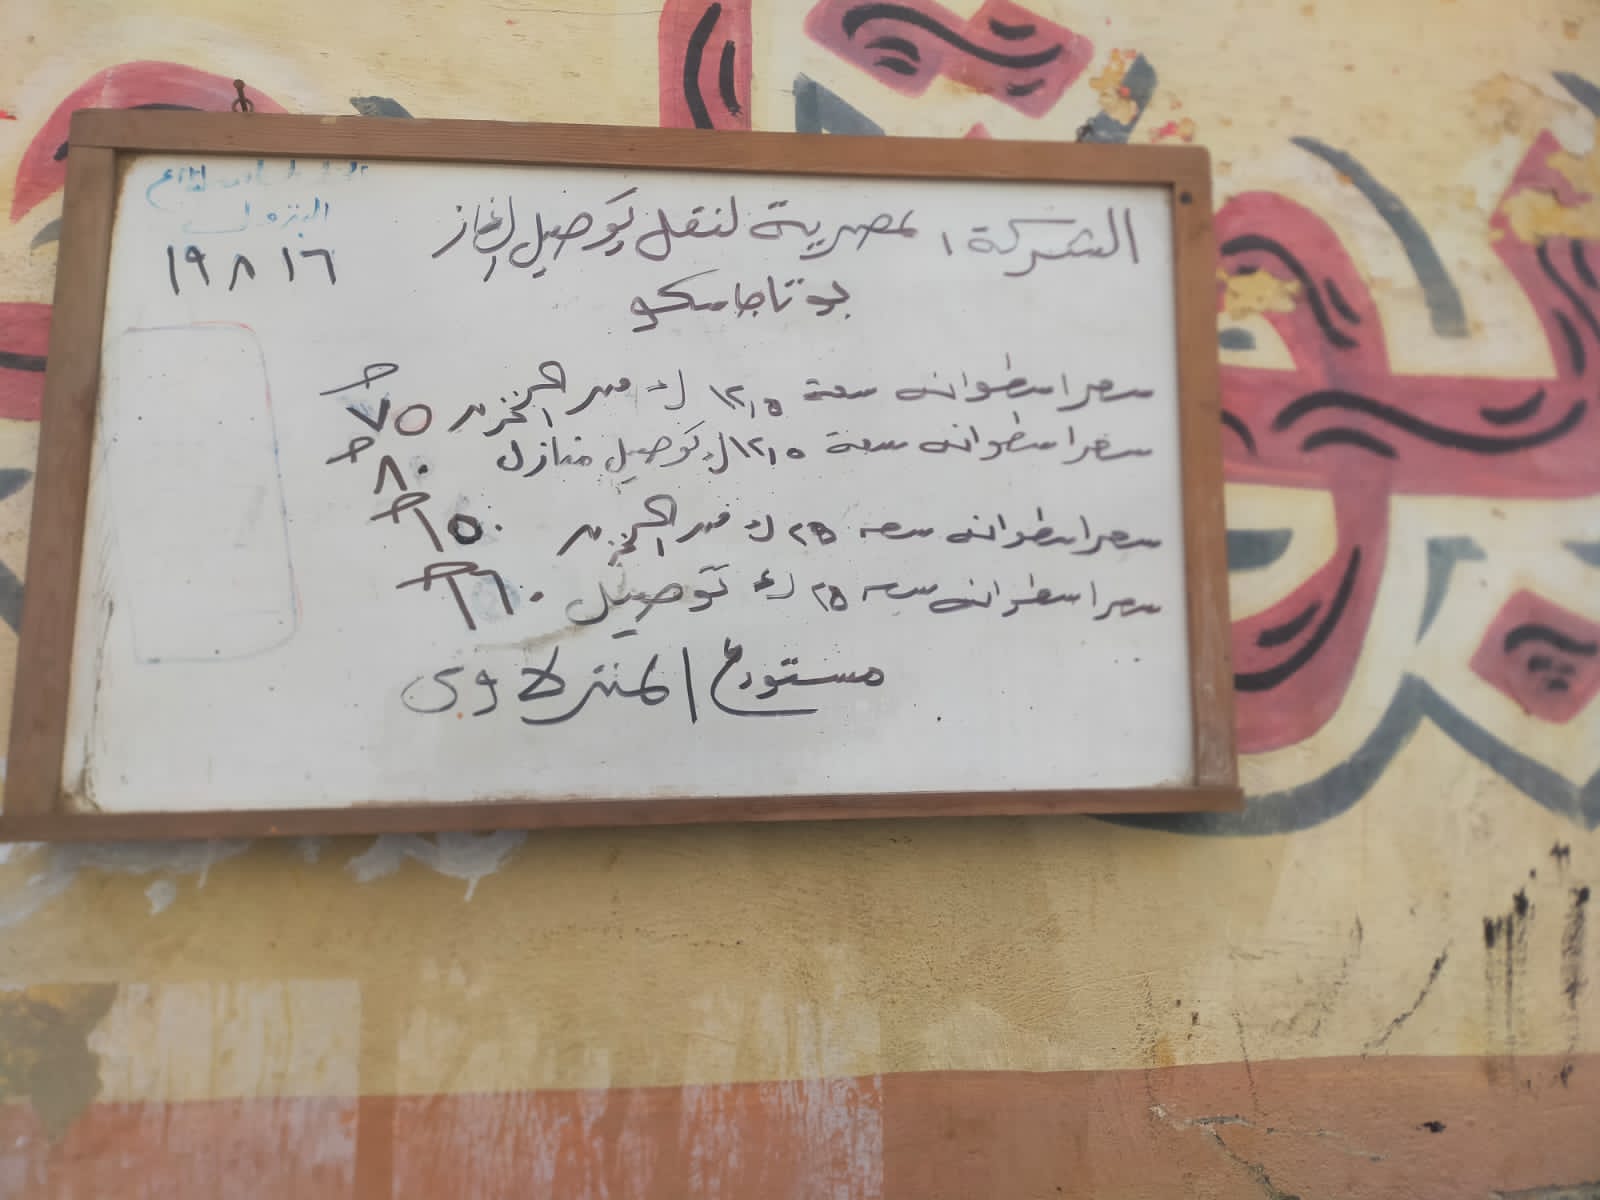 الشركة المصرية لنقل وتوصيل الغاز
بوتاجاسكو
البترول
١٩٨١٦
سعر اسطوانه سعة ١٢,٥ ك من المخزن ٧٥ ج
سعر اسطوانه سعة ١٢,٥ ك توصيل منازل ٨٠ ج
سعر اسطوانه سعه ٢٥ ك من المخزن ١٥٠ ج
سعر اسطوانه سعه ٢٥ ك توصيل ١٦٠ ج
مستودع المنزلاوى